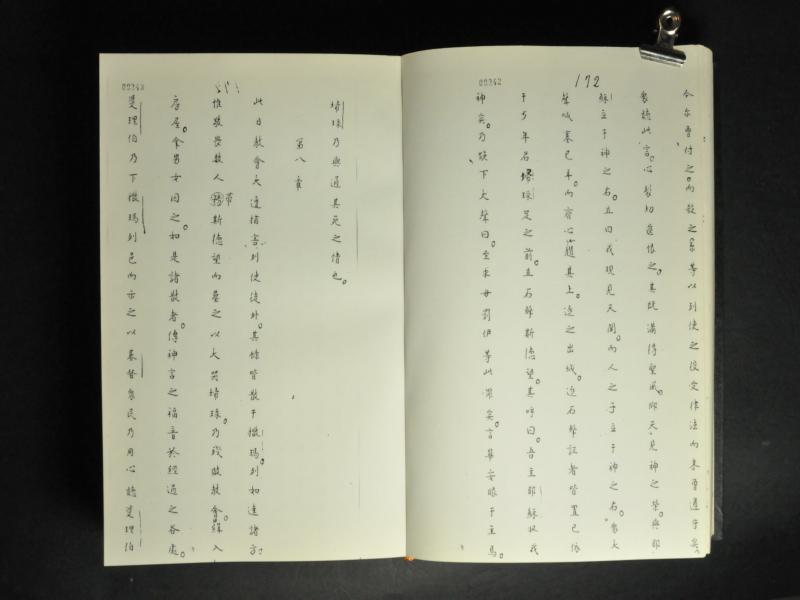 172
00242
今尔曹付之。而殺之。等以列使之役受律法而未曹遵守矣。
衆聽此言。心裂切齒恨之。其既滿得聖風。仰天見神之榮。與耶
穌立于神之右。且曰我現見天開。而人之子立于神之右。衆大
聲喊塞己耳。而齊心趲其上。逐之出城。追石擊証者皆置己衣
于少年名掃珠足之前。且石擊斯德望。其呼曰。吾主耶穌収我
神矣。乃跪下大聲曰。主未毋罰伊等此罪矣。言畢安眠于主焉。
00243
掃珠乃與通其死之情也。
第八章
此日教會大遭捕害到使徒外。其餘皆散于撒瑪列如達諸方。
惟數畏教人帶斯德望而墓之以大哭掃珠乃殘敗教會。緣入
房屋。拿男女囚之。如是諸散者。傳神言之福音於經過之各處。
斐理伯乃下撒瑪列邑而示之以基督衆民乃用心聽斐理伯